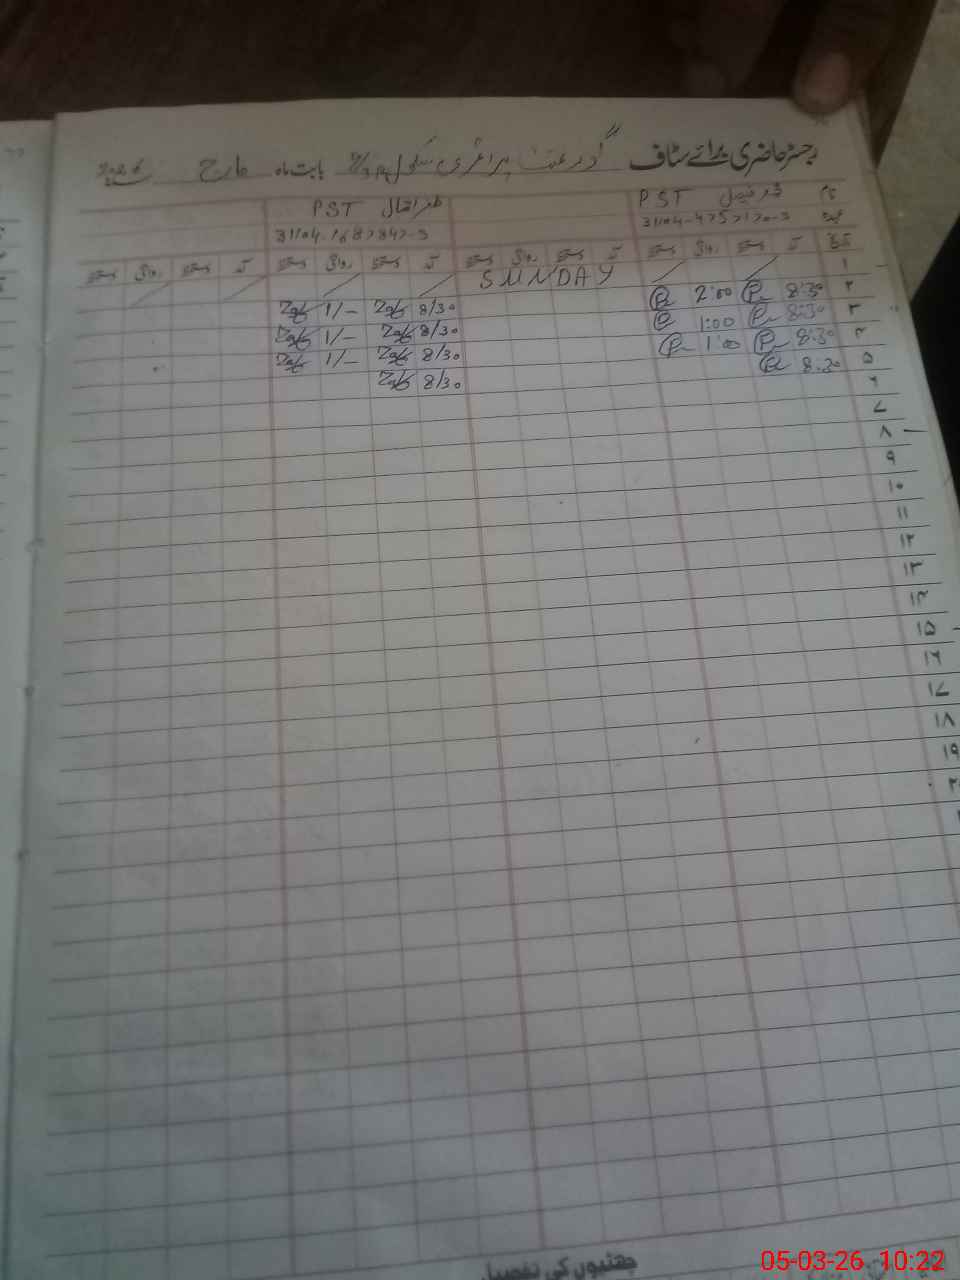 رجسٹر حاضری برائے سٹاف گورنمنٹ پرائمری سکول بابت ماہ مارچ 2026
نام محمد فیصل PST ظفر اقبال PST
عہدہ
تاریخ آمد دستخط روانگی دستخط آمد دستخط روانگی دستخط آمد دستخط روانگی دستخط آمد دستخط روانگی دستخط
۱ SUNDAY
۲ 8:30 2:00 8/30 1/-
۳ 8:30 1:00 8/30 1/-
۴ 8:30 1:00 8/30 1/-
۵ 8:30 8/30
۶
۷
۸
۹
۱۰
۱۱
۱۲
۱۳
۱۴
۱۵
۱۶
۱۷
۱۸
۱۹
۲۰
چھٹیوں کی تفصیل
05-03-26 10:22